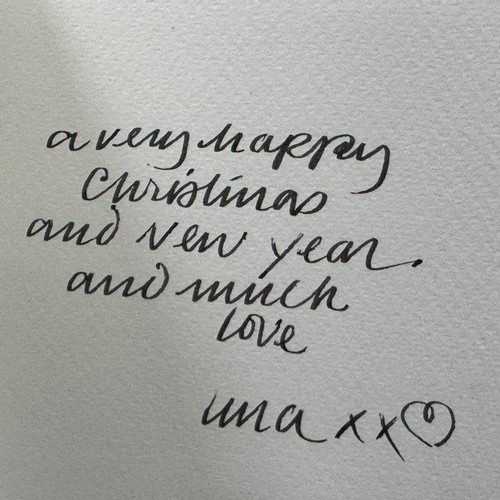 a very happy
Christmas
and New year.
and much
love
una xx♡